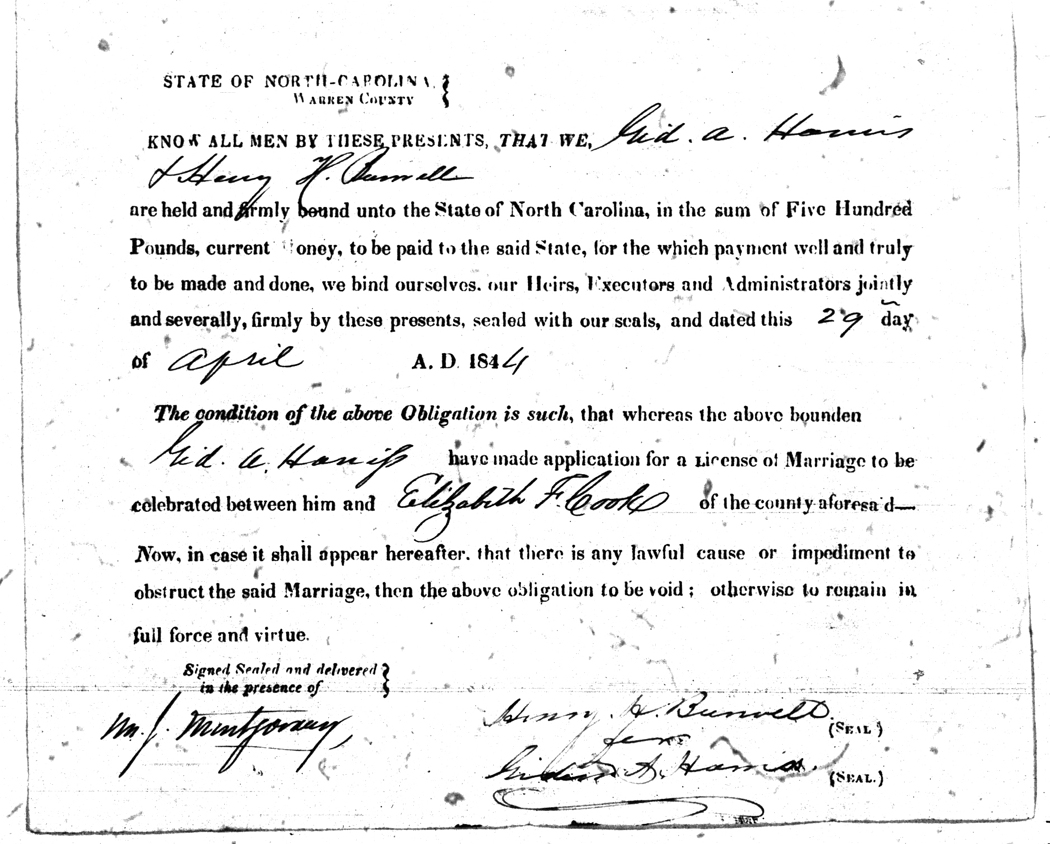 STATE OF NORTH-CAROLINA,
WARREN COUNTY
KNOW ALL MEN BY THESE PRESENTS, THAT WE, Gid. A. Harris
& Henry H. Burwell
are held and firmly bound unto the State of North Carolina, in the sum of Five Hundred
Pounds, current oney, to be paid to the said State, for the which payment well and truly
to be made and done, we bind ourselves. our Heirs, Executors and Administrators jointly
and severally, firmly by these presents, sealed with our seals, and dated this 29 day
of April A. D. 1844
The condition of the above Obligation is such, that whereas the above bounden
Gid. A. Harriss have made application for a License of Marriage to be
celebrated between him and Elizabeth F. Cooke of the county aforesa'd—
Now, in case it shall appear hereafter. that there is any lawful cause or impediment to
obstruct the said Marriage, then the above obligation to be void; otherwise to remain in
full force and virtue.
Signed Sealed and delivered
in the presence of
Henry H. Burwell
(SEAL)
Montgomery,
A. Harris
(SEAL.)